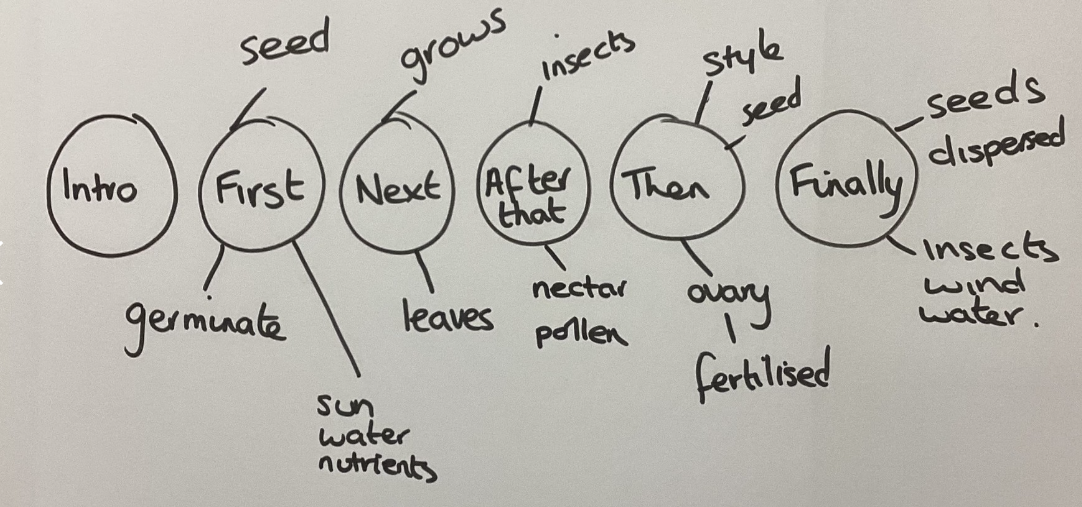 seed
grows
insects
style
seed
seeds
dispersed
Intro
First
Next
After
that
Then
Finally
germinate
sun
water
nutrients
leaves
nectar
pollen
ovary
fertilised
insects
wind
water.